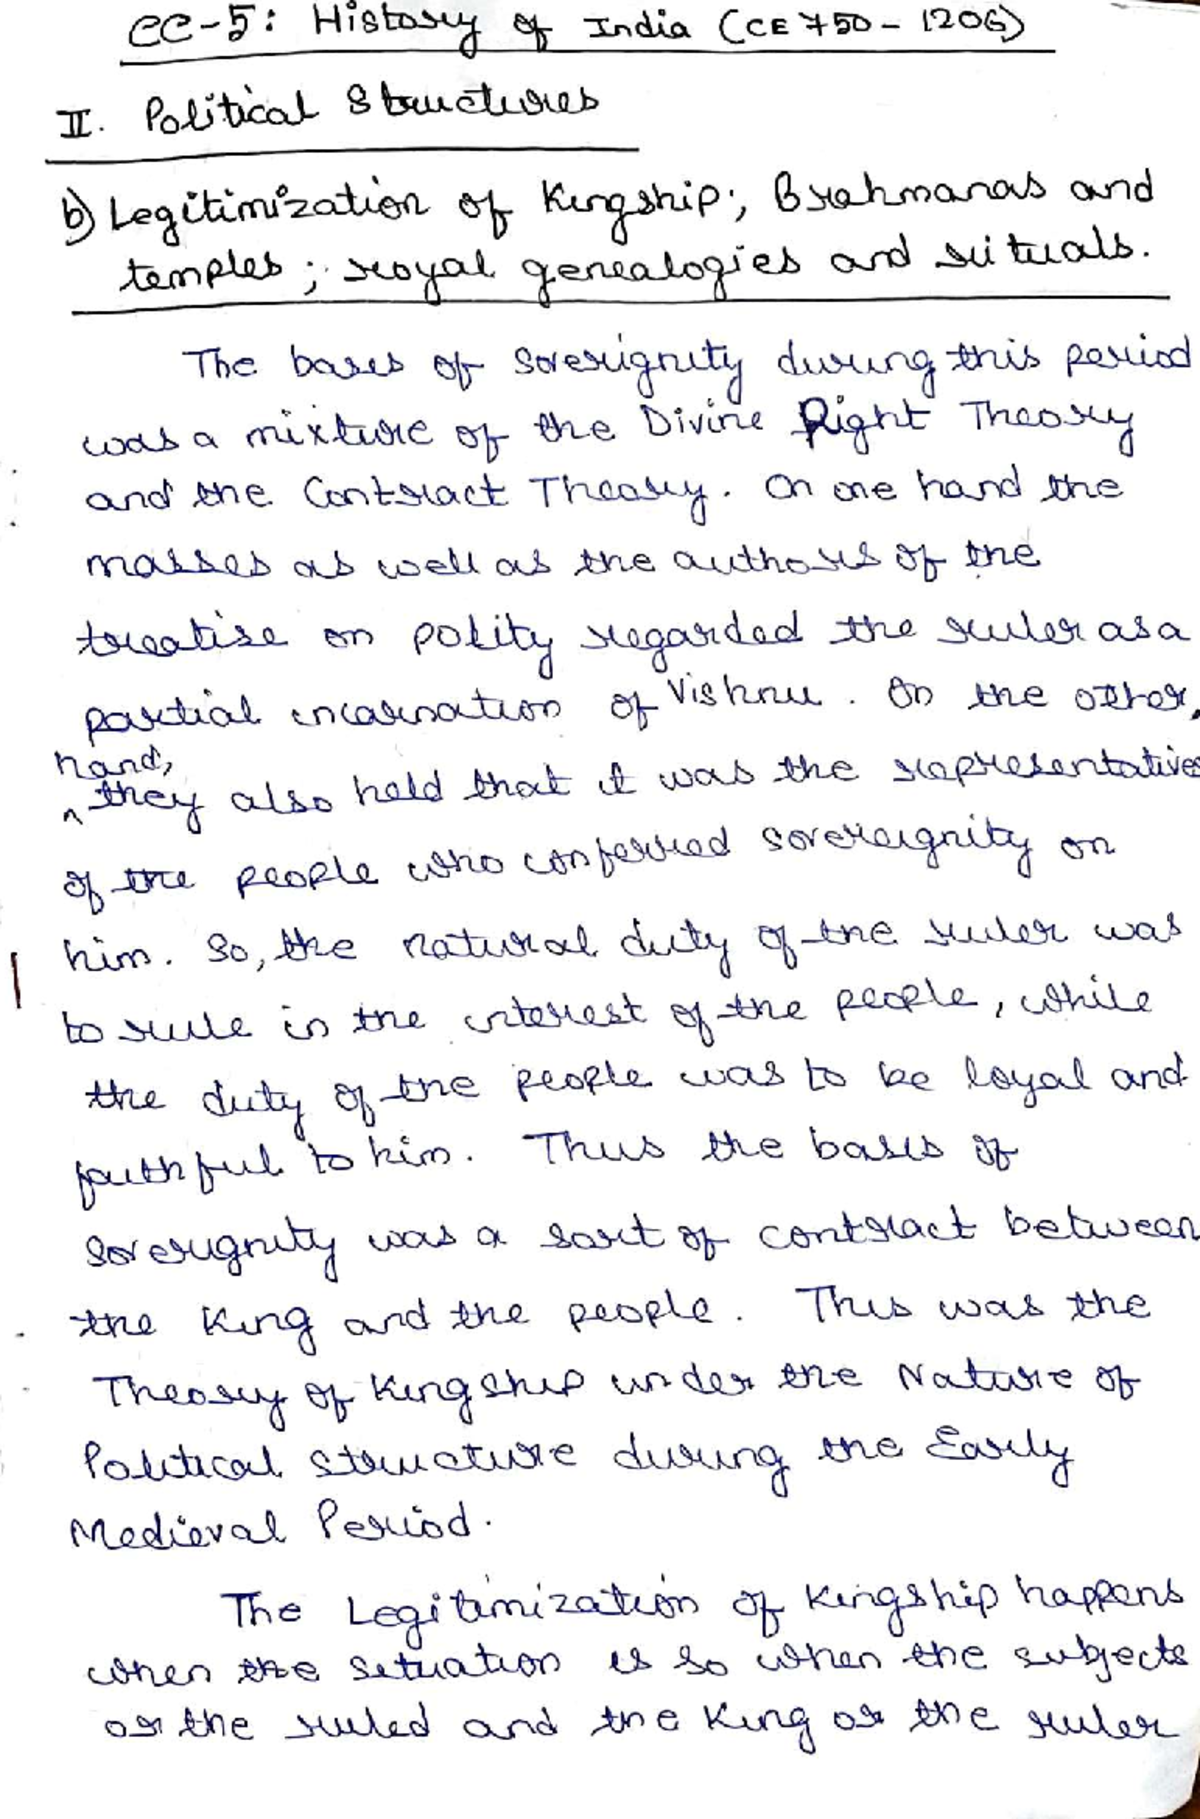 CC-5: History of India (CE 750-1206)
II. Political Structures
b) Legitimization of Kingship; Brahmanas and
temples; royal genealogies and rituals.
The bases of Soverignity during this period
was a mixture of the Divine Right Theory
and the Contract Theory. On one hand the
masses as well as the authors of the
treatise on polity regarded the ruler as a
partial incarnation of Vishnu. On the other,
hand,
^ they also held that it was the representatives
of the people who conferred sovereignity on
him. So, the natural duty of the ruler was
to rule in the interest of the people, while
the duty of the people was to be loyal and
faithful to him. Thus the basis of
Soverignity was a sort of contract between
the King and the people. This was the
Theory of Kingship under the Nature of
Political structure during the Early
Medieval Period.
The Legitimization of Kingship happens
when the situation is so when the subjects
or the ruled and the King or the ruler